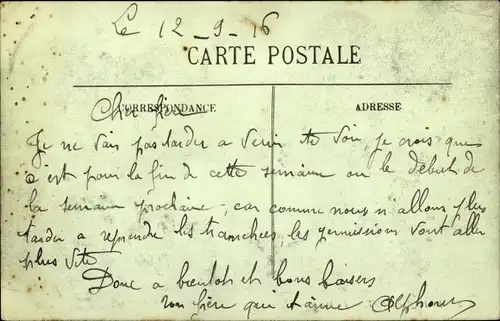 Le 12_9_16
CARTE POSTALE
CORRESPONDANCE
ADRESSE
Cher frère
Je ne vais pas tarder a venir te voir, je crois que
c'est pour la fin de cette semaine ou le début de
la semaine prochaine, car comme nous n'allons plus
tarder a reprendre les tranchées, les permissions vont aller
plus vite
Donc a bientot et bons baisers
ton frère qui t'aime Alphonse